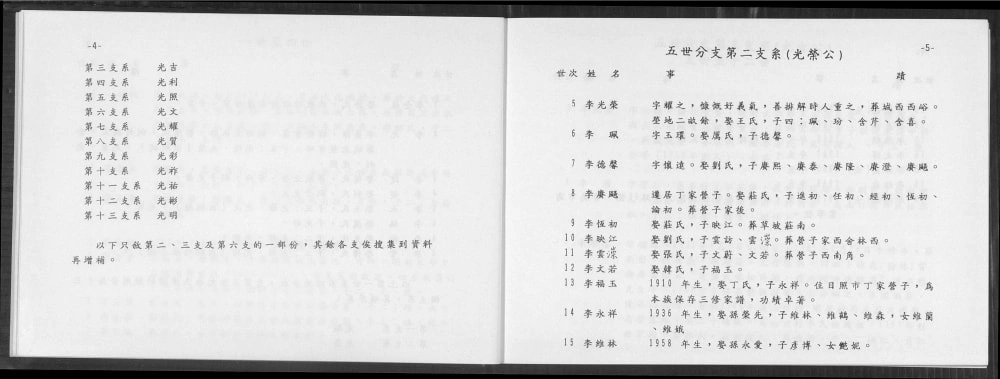 -4-
第三支系 光吉
第四支系 光利
第五支系 光照
第六支系 光文
第七支系 光耀
第八支系 光賀
第九支系 光彩
第十支系 光祚
第十一支系 光祐
第十二支系 光彬
第十三支系 光明
以下只敘第二、三支及第六支的一部份,其餘各支俟搜集到資料
再增補。
-5-
五世分支第二支系(光榮公)
世次 姓 名 事 蹟
5 李光榮 字耀之,慷慨好義氣,善排解時人重之,葬城西西峪。
塋地二畝餘,娶王氏,子四:珮、玢、含芹、含喜。
6 李 珮 字玉環。娶厲氏,子德馨。
7 李德馨 字懷遠。娶劉氏,子賡熙、賡泰、賡隆、賡澄、賡颺。
8 李賡颺 遷居丁家營子。娶莊氏,子進初、任初、經初、恆初、
論初。葬營子家後。
9 李恆初 娶莊氏,子映江。葬草坡莊南。
10 李映江 娶劉氏,子雲訪、雲深。葬營子家西舍林西。
11 李雲深 娶張氏,子文蔚、文若。葬營子西南角。
12 李文若 娶韓氏,子福玉。
13 李福玉 1910 年生,娶丁氏,子永祥。住日照市丁家營子,為
本族保存三修家譜,功績卓著。
14 李永祥 1936 年生,娶孫榮先,子維林、維鶴、維森,女維蘭
、維娥
15 李維林 1958 年生,娶孫永愛,子彥博、女艷妮。